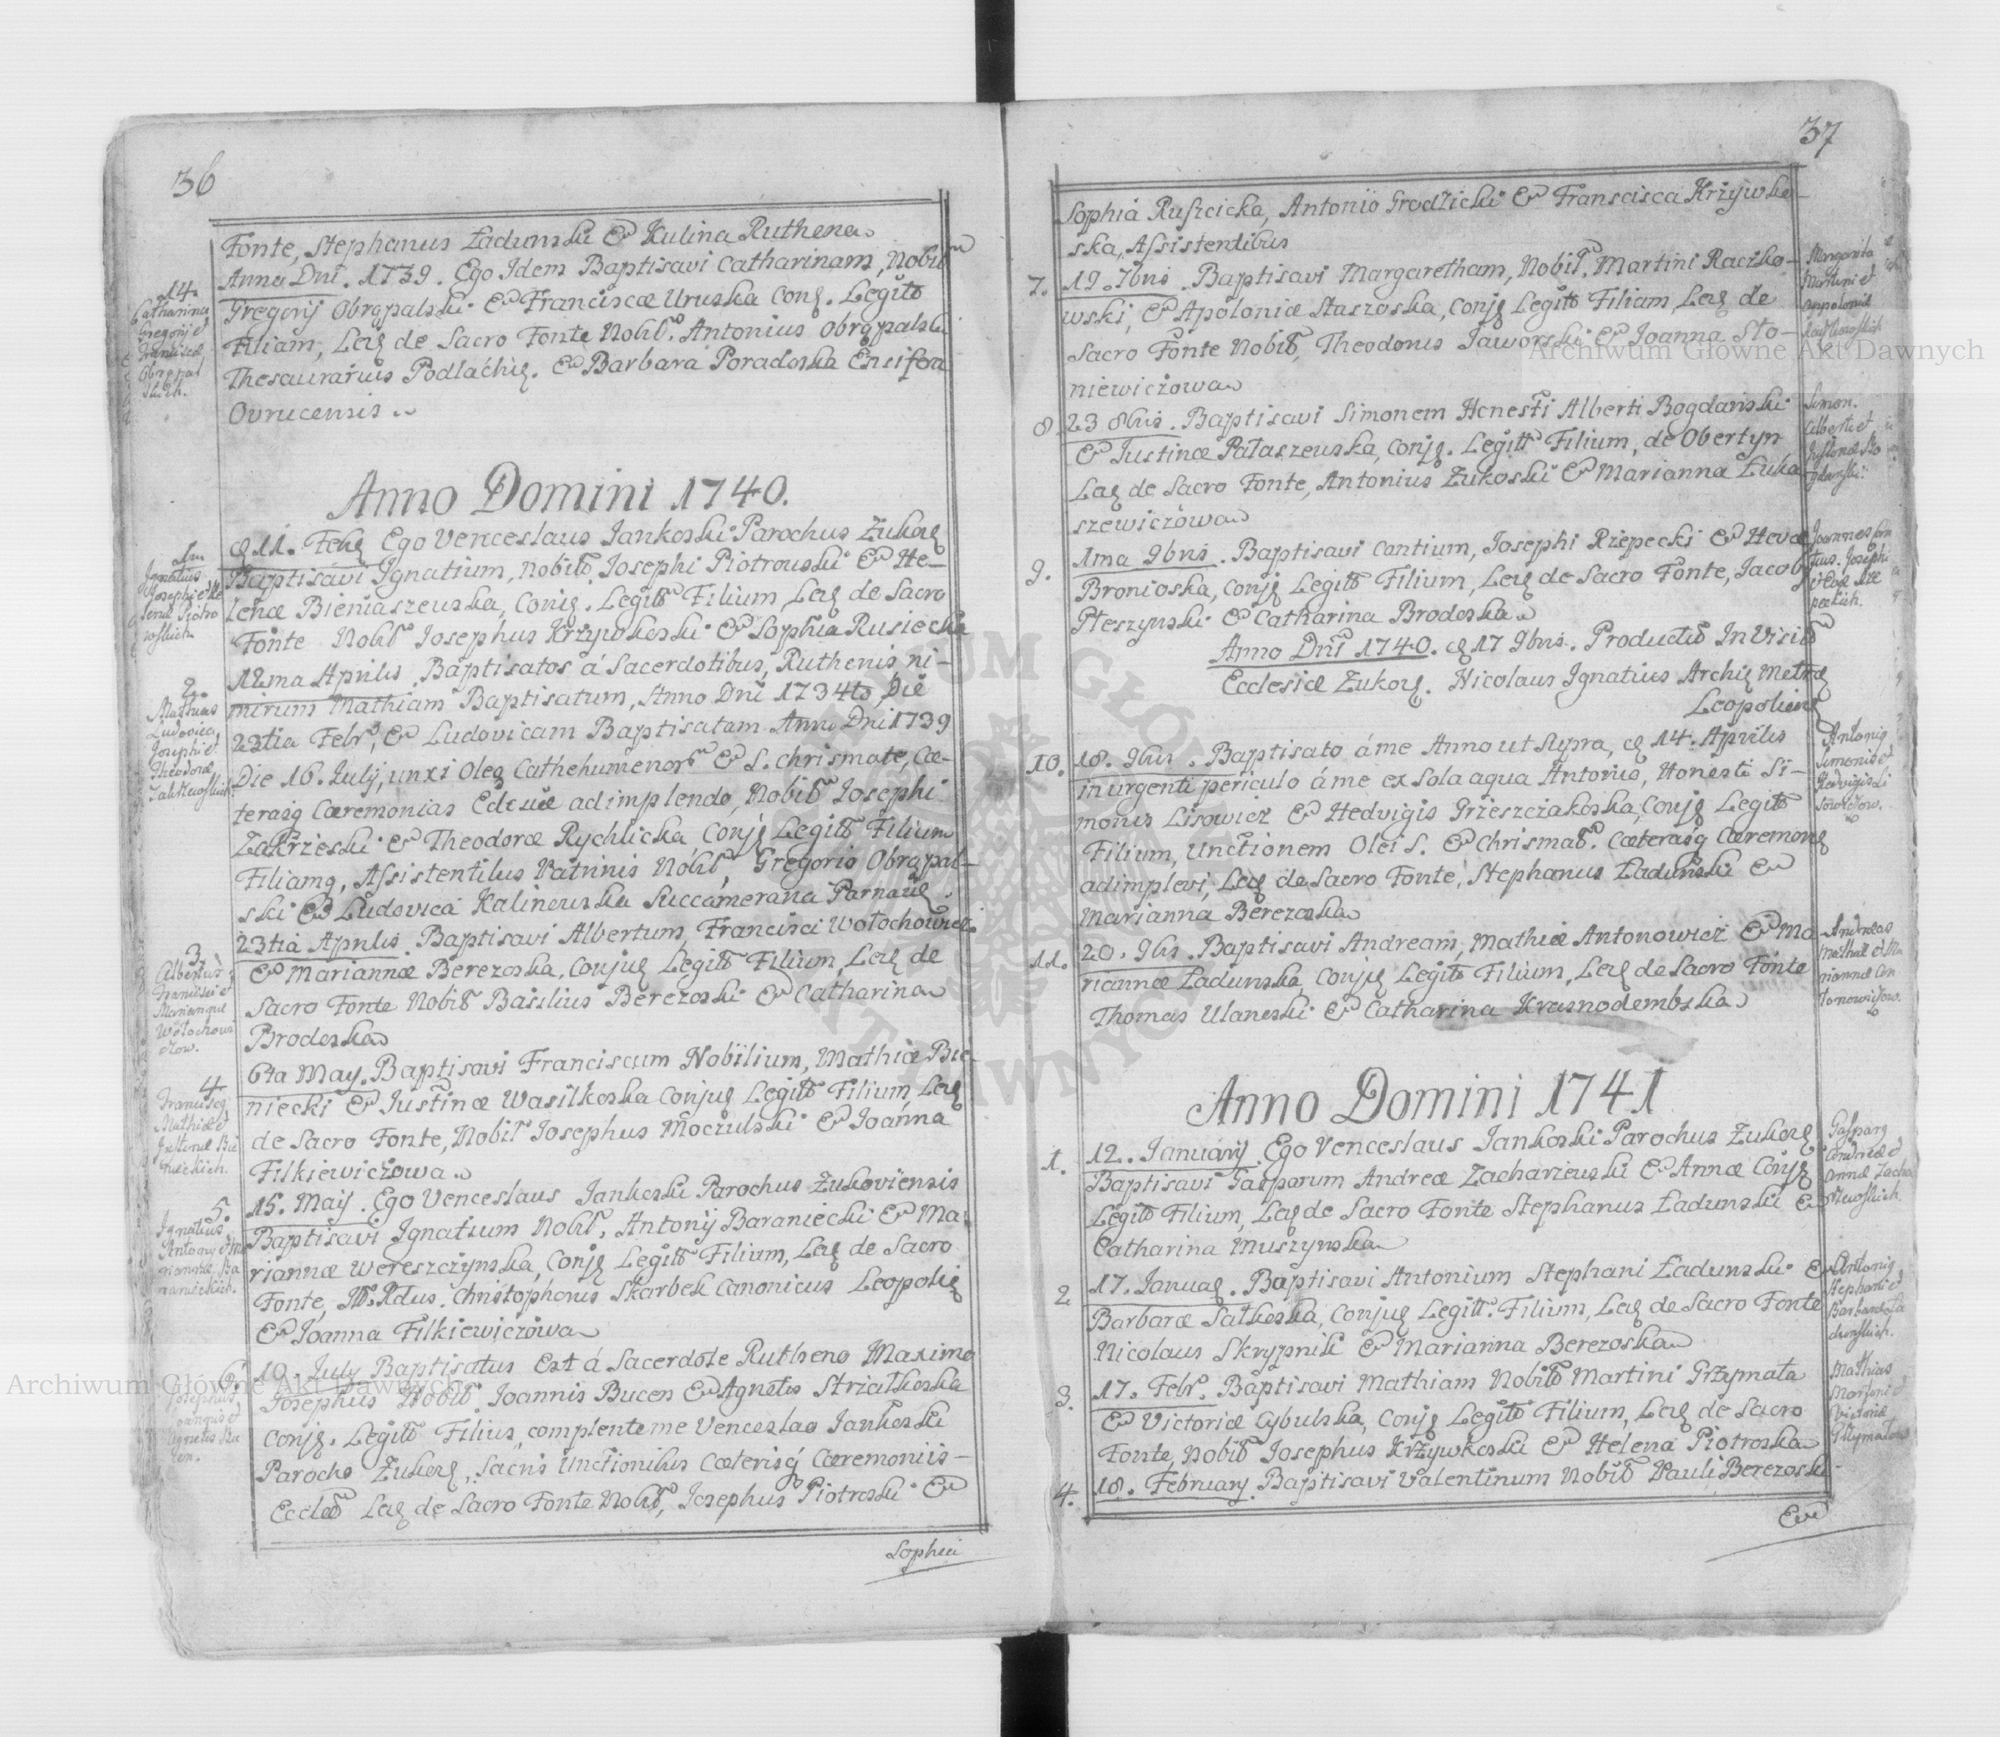 36
Fonte, Stephanus Ładunski & Kulina Ruthena
14.
Catharinae
Gregorij et
Franciscae
Obrąpal
skich.
Anno Dni. 1739. Ego Idem Baptisavi Catharinam, Nobilium
Gregorij Obrąpalski & Franciscæ Uruska Conj. Legitt
Filiam, Leq de Sacro Fonte Nobil. Antonius Obrąpalski
Thesaurarius Podlachię. & Barbara Poradoska Ensifera
Ovrucensis
Anno Domini 1740.
1m
Ignatius
Josephi et He
lenae Piotro
wskich.
11. Feb Ego Venceslaus Jankoski Parochus Zukov
Baptisavi Ignatium, Nobil. Josephi Piotrouski & He-
lenæ Bieniaszeuska, Conj. Legitt Filium, Leq de Sacro
Fonte Nobil Josephus Krzywkoski & Sophia Rusiecka
2.
Mathias
Ludovica
Josephi et
Theodorae
Zakrzewskich
12ma Aprilis Baptisatos á Sacerdotibus, Ruthenis, ni-
mirum Mathiam Baptisatum, Anno Dni 1734to, Die
23tia Febr, & Ludovicam Baptisatam Anno Dni 1739
Die 16. July, unxi Oleo Cathehumenor & S. Chrismate, Cæ-
terasq Cæremonias adimplendo, Nobil Josephi
Zakrzeski & Theodoræ Rychlicka Conj Legitt Filium
Filiamq, Assistentibus Patrinis Nobil, Gregorio Obrąpal-
ski & Ludovica Kalineuska Succamerana Parnau
3.
Albertus
Francisci et
Mariannae
Wołochowi
czow.
23tia Aprilis. Baptisavi Albertum, Francisci Wołochowicz
& Mariannæ Berezoska, Conjug Legitt Filium, Leq de
Sacro Fonte Nobil Basilius Berezoski & Catharina
Brodoska
4.
Franciscq
Mathiae et
Justinae Bie
nieckich.
6ta May. Baptisavi Franciscum Nobilium, Mathiæ Bie-
niecki & Justinæ Wasilkoska Conjug Legitt Filium, Leq
de Sacro Fonte, Nobil Josephus Moczulski & Joanna
Filkiewiczowa
5.
Ignatius
Antonij et Ma
riannae Ba
ranieckich.
15. Maij. Ego Venceslaus Jankoski Parochus Zukoviensis
Baptisavi Ignatium Nobil, Antonij Baraniecki & Ma-
riannæ Wereszczynska, Conj Legitt Filium, Leq de Sacro
Fonte, Rdus. Christophorus Skarbek Canonicus Leopolię
& Joanna Filkiewiczowa
6.
Josephus
Joannis et
Agnetis Bu
cen.
10. July Baptisatus Est á Sacerdote Rutheno Maximo
Josephus Nobil. Joannis Bucen & Agnetis Strzałkoska
Conj. Legitt Filius, complente me Venceslao Jankoski
Parocho Zukov, Sacris Unctionibus Cæterisq Cæremoniis
Eccles Leq de Sacro Fonte Nobil, Josephus Piotroski &
Sophia
37
Sophia Ruszcicka, Antonio Grodzicki & Franscisca Krzywko-
ska, Assistentibus
7.
19. 7bris. Baptisavi Margaretham, Nobil. Martini Raczko-
wski, & Apoloniæ Staszoska, Conj Legitt Filiam, Leq de
Sacro Fonte Nobil, Theodorus Jaworski & Joanna Sto-
niewiczowa
Margarita
Martini et
Appoloniae
Raczkowskich
8.
23 8bris. Baptisavi Simonem Honesti Alberti Bogdanski
& Justinæ Pałaszeuska, Conj. Legitt Filium, de Obertyn
Leq de Sacro Fonte, Antonius Zukoski & Marianna Łuka
szewiczowa
Simon.
Alberti et
Justinae Bo
gdanski:
9.
1ma 9bris. Baptisavi Cantium, Josephi Rzepecki & Hevæ
Bronioska, Conj Legitt Filium, Leq de Sacro Fonte, Jacob
Pleszynski & Catharina Brodoska
Joannes Can
tius. Josephi
et Evae Rze
peckich.
Anno Dni 1740. 17 9bris. Productu In Visit
Ecclesiæ Zukov. Nicolaus Ignatius Archię Metro
Leopolien
10.
18. 9bris. Baptisato á me Anno ut Supra, 14. Aprilis
in urgenti periculo á me ex sola aqua Antonio, Honesti Si-
monis Lisowicz & Hedvigis Grzeszczakoska, Conj Legitt
Filium, Unctionem Olei S. & Chrismat. Cæterasq Cæremon
adimplevi, Leq de Sacro Fonte, Stephanus Ładunski &
Marianna Berezoska
Antonig
Simonis et
Hedvigis Li
sowiczow.
11.
20. 9bris. Baptisavi Andream, Mathiæ Antonowicz & Ma
riannæ Ładunska, Conjug Legitt Filium, Leq de Sacro Fonte
Thomas Ulaneski & Catharina Krasnodembska
Andreas
Mathiae et Ma
riannae An
tonowiczow.
Anno Domini 1741
1.
12. Januarij. Ego Venceslaus Jankoski Parochus Zukov
Baptisavi Gasparum Andreæ Zacharieuski & Annæ Conj
Legitt Filium, Leq de Sacro Fonte Stephanus Ładunski &
Catharina Muszynska
Gasparg
Andreae et
Annae Zacha
rzewskich.
2
17. Januar. Baptisavi Antonium Stephani Ładunski &
Barbaræ Satkoska, Conjug Legitt. Filium, Leq de Sacro Fonte
Nicolaus Skrypnik & Marianna Berezoska
Antonig
Stephani et
Barbarae Ła
dunskich.
3.
17. Febr. Baptisavi Mathiam Nobil Martini Grzymała
& Victoriæ Cybulska, Conj Legitt Filium, Leq de Sacro
Fonte, Nobil Josephus Krzywkoski & Helena Piotroska
Mathias
Martini et
Victoriae
Grzymałow
4.
18. February. Baptisavi Valentinum Nobil Pauli Berezoski
&
Archiwum Główne Akt Dawnych
Archiwum Główne Akt Dawnych
ARCHIWUM GŁÓWNE AKT DAWNYCH